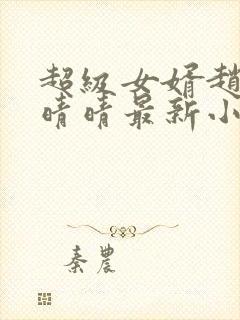 超級女婿趙
晴晴最新小
秦農